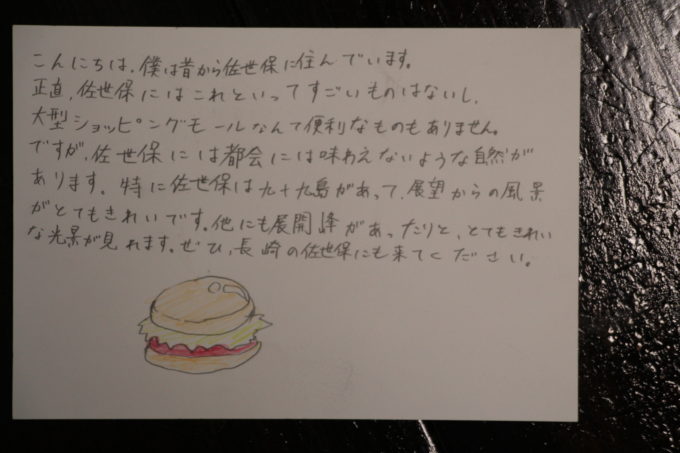 こんにちは、僕は昔から佐世保に住んでいます。
正直、佐世保にはこれといってすごいものはないし、
大型ショッピングモールなんて便利なものもありません。
ですが、佐世保には都会には味わえないような自然が
あります。特に佐世保は九十九島があって、展望からの風景
がとてもきれいです。他にも展開峰があったりと、とてもきれい
な光景が見れます。ぜひ、長崎の佐世保にも来てください。